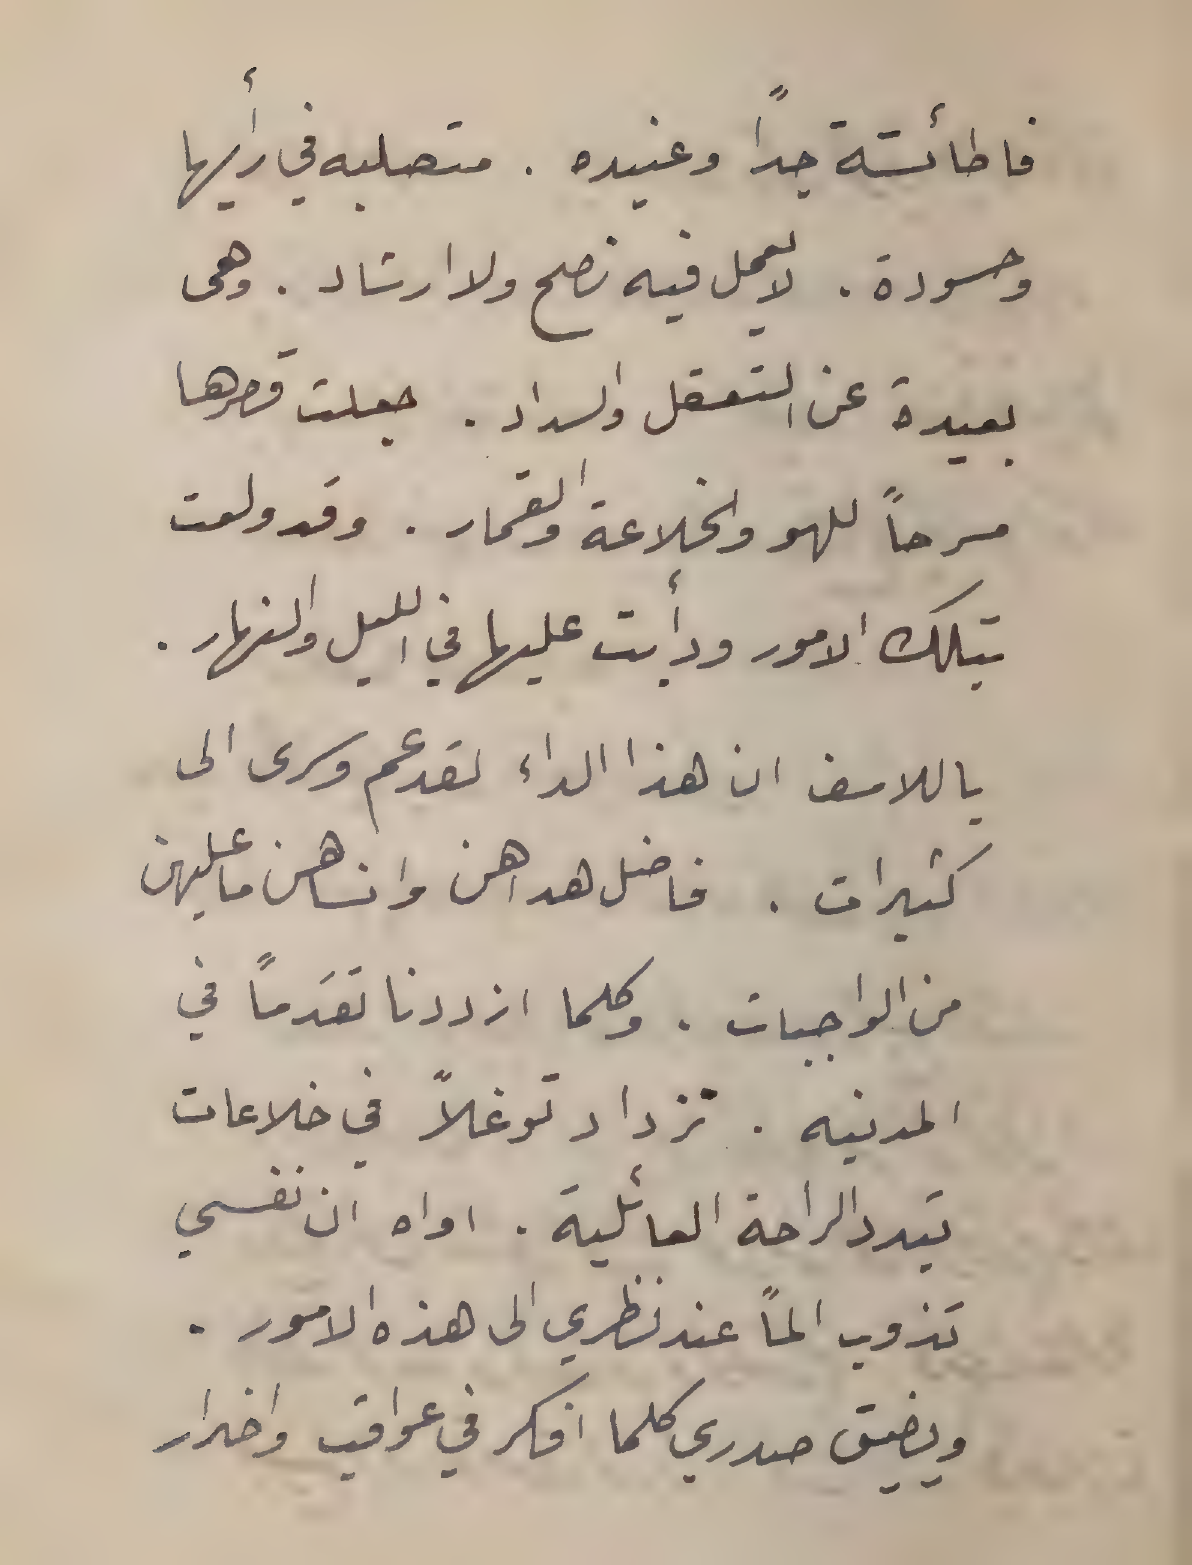 فاطائشة جداً وعنيده . متصلبه في رأيها
وحسودة . لا يعمل فيه نصح ولا ارشاد . وهى
بعيدة عن التعقل والسداد . جعلت قصرها
مسرحاً للهو والخلاعة والقمار . وقد ولعت
بتلك الامور ودأبت عليها في الليل والنهار .
ياللاسف ان هذا الداء لقد عم وسرى الى
كثيرات . فاضل هداهن وانساهن ما عليهن
من الواجبات . وكلما ازددنا تقدماً في
المدنيه . تزداد توغلاً في خلاعات
تبدد الراحة العائلية . اواه ان نفسي
تذوب الماً عند نظري الى هذه الامور .
ويضيق صدري كلما افكر في عواقب واضرار